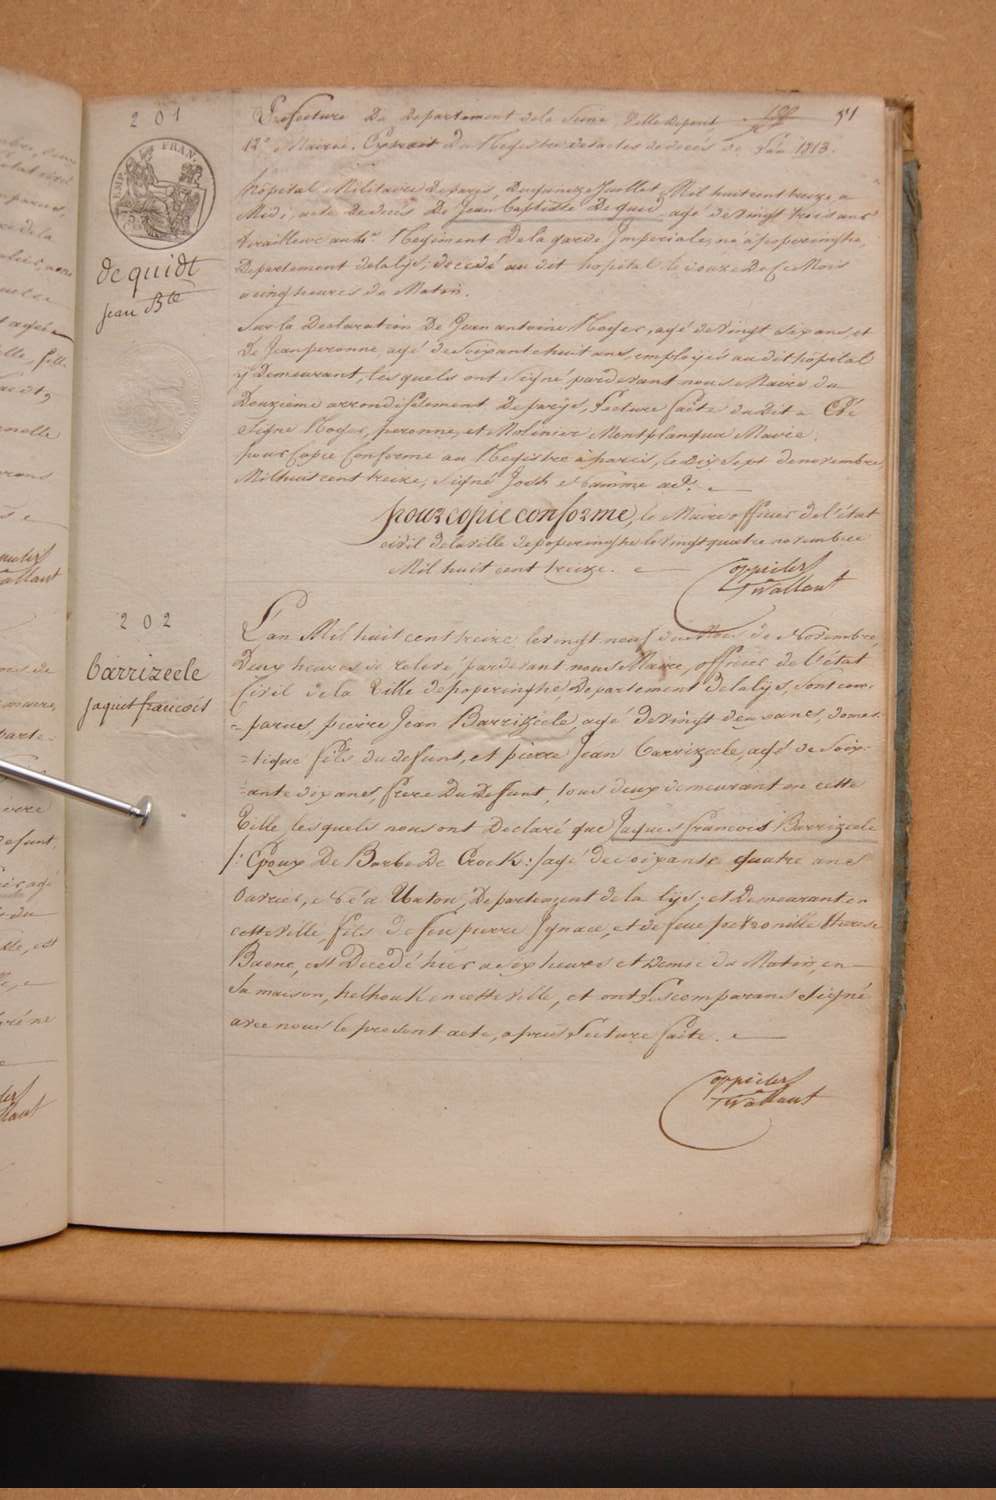 201
51
EMP. FRAN.
Prefecture Du Departement de la Seine, Ville de paris
12e Mairie. Extrait Du Registre des actes de deces de L'an 1813.
hôpital Militaire De paris, Du quinze Juillet Mil huit cent treize a
Midi, acte De deces De Jean Baptiste De quid agé de vingt trois ans
tirailleur au Regiment De la garde Imperiale, né à poperinghe,
Departement de la lys, decedé au dit hopital le douze de ce Mois
a cinq heures du Matin.
de quidt
jean Bte
Sur la Declaration De Jean antoine Royer, agé de vingt six ans et
De Jean peronne, agé de soixante huit ans, employés au dit hopital
y Demeurant, lesquels ont signé pardevant nous Maire du
Douzième arrondissement De paris, Lecture faite du dit a Eté
signé Royer, peronne, et Molinier Montplanqua Maire.
pour Copie Conforme au Registre à paris, le Dix Sept de novembre
Mil huit cent treize, signé
pour copie conforme, le Maire officier de l'état
civil de la ville de poperinghe le vingt quatre novembre
Mil huit cent treize.
202
L'an Mil huit cent treize le vingt neuf du Mois de Novembre
Deux heures de relevé pardevant nous Maire, officier de l'état
Civil de la Ville de poperinghe Departement de la lys, sont com-
=parus, pierre Jean Barrizeele, agé de vingt deux ans, domes-
=tique fils du defunt, et pierre Jean barrizeele, agé de soix-
=ante dix ans, frere Du Defunt, tous deux demeurant en cette
Ville, lesquels nous ont Declaré que Jaques francois Barrizeele
/: Epoux De Barbe De Crock :/ agé de soixante quatre ans
ouvrier, né à Watou, Departement de la lys, et demeurant en
cette ville, fils de feu pierre Ignace, et de feue petronille therese
Baene, est Decedé hier a six heures et demie du Matin, en
sa maison, helhouk en cette ville, et ont Les comparans signé
avec nous le present acte, apres Lecture faite.
barrizeele
jaques francois